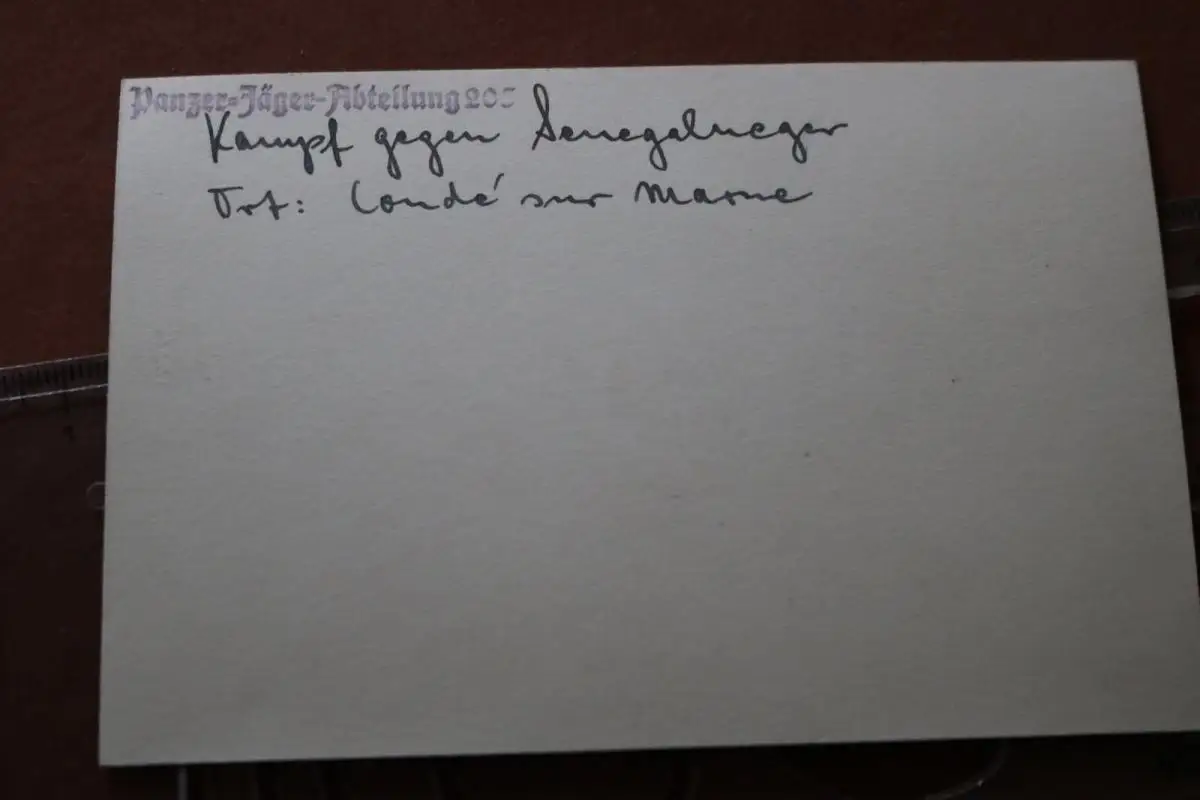 Panzer-Jäger-Abteilung 205
Kampf gegen Senegalneger
Ort: Condé sur Marne